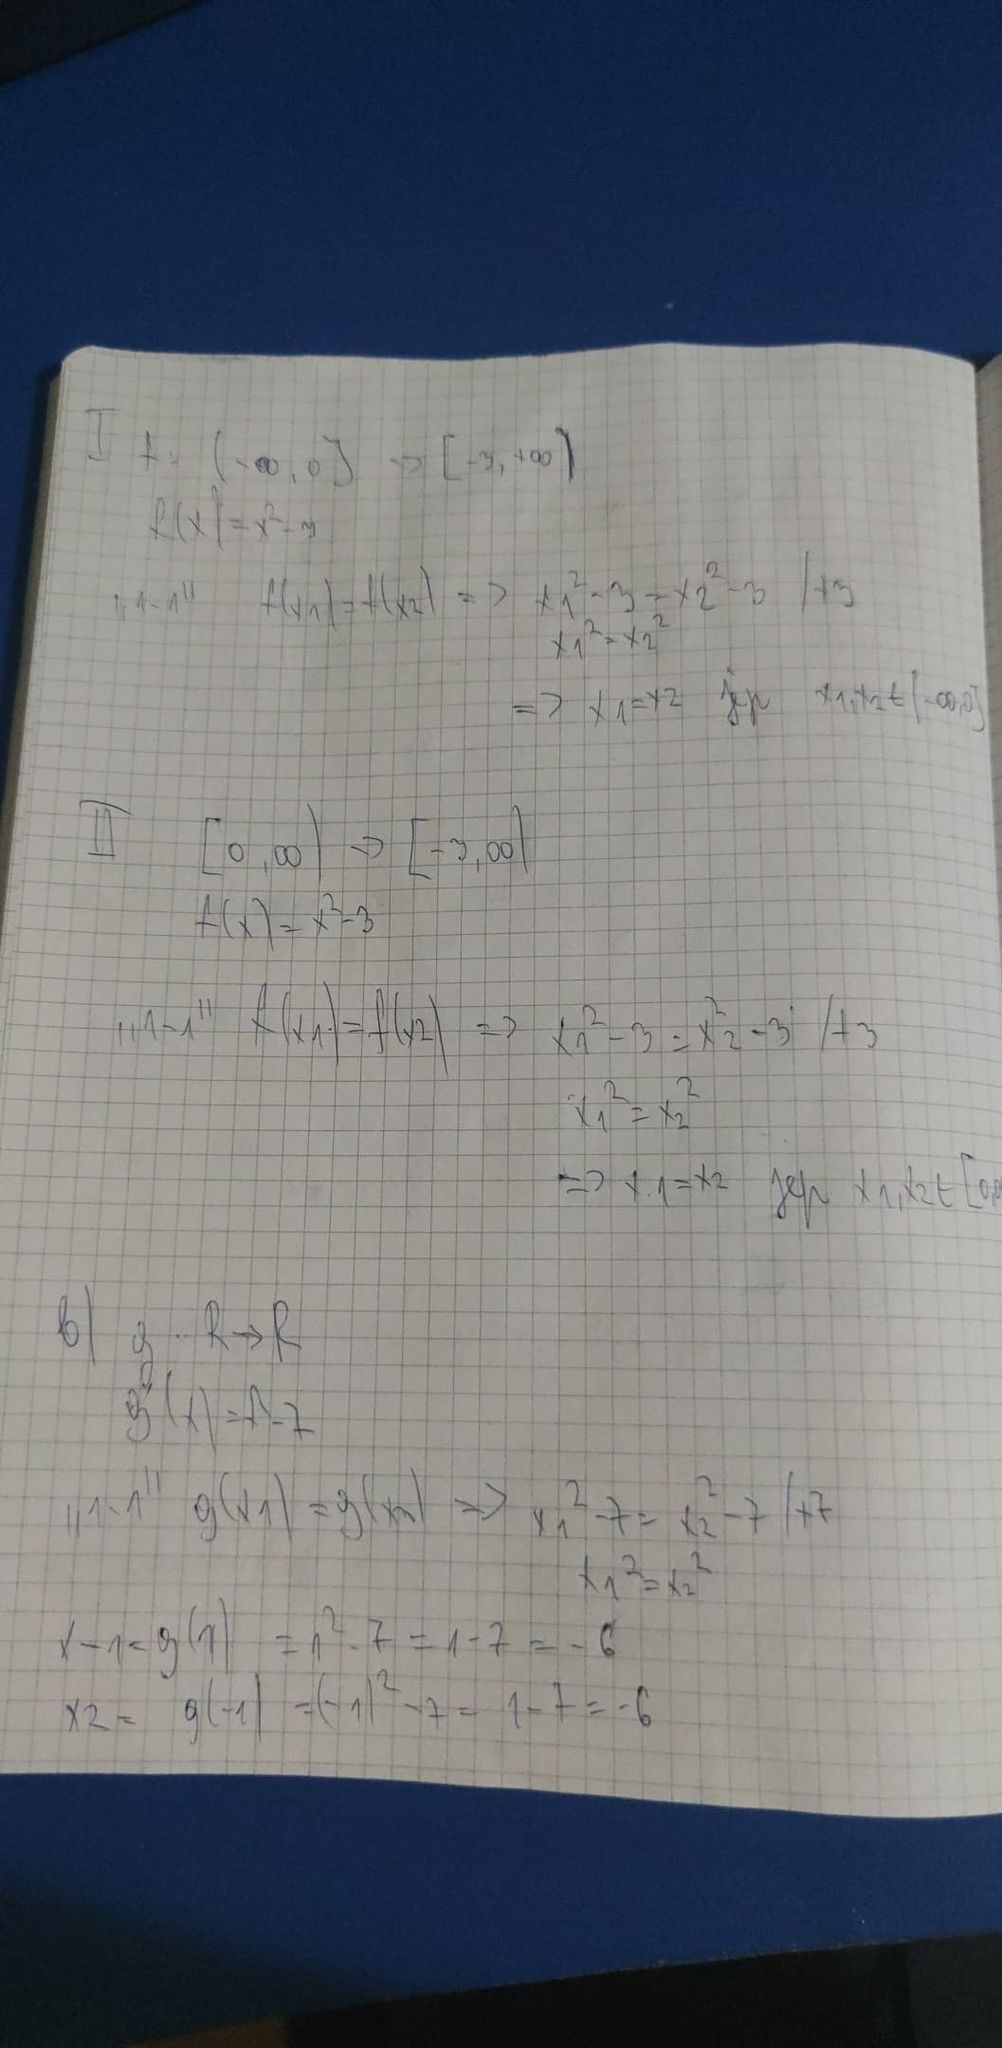 I f: (-∞, 0] -> [-3, +∞)
f(x) = x²-3
„1-1" f(x1) = f(x2) => x1²-3 = x2²-3 /+3
x1² = x2²
=> x1=x2 јер x1,x2 ∈ (-∞,0]
II [0, ∞) -> [-3, ∞)
f(x) = x²-3
„1-1" f(x1) = f(x2) => x1²-3 = x2²-3 /+3
x1² = x2²
=> x1=x2 јер x1,x2 ∈ [0,
b) g: R->R
g(x) = -7
„1-1" g(x1) = g(x2) => x1²-7 = x2²-7 /+7
x1² = x2²
x-1 = g(1) = 1²-7 = 1-7 = -6
x2 = g(-1) = (-1)²-7 = 1-7 = -6